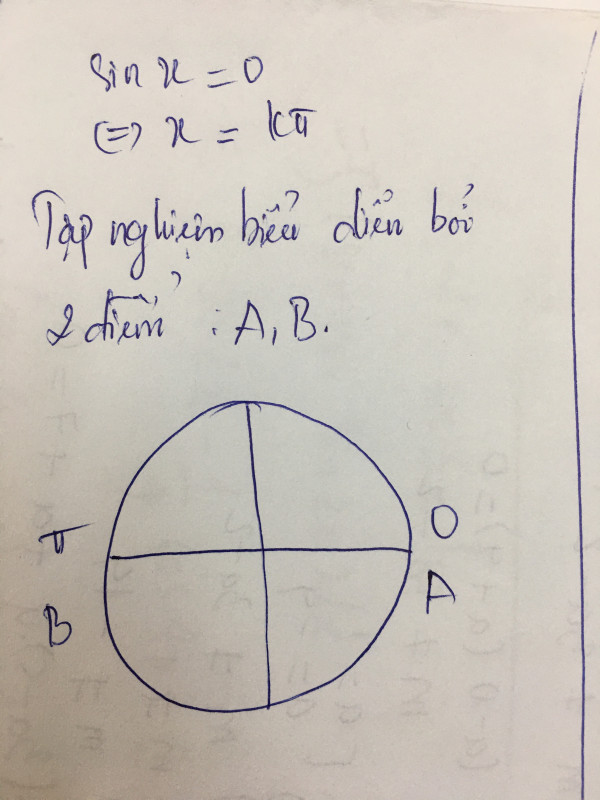 sin x = 0
(=) x = kπ
Tập nghiệm biểu diễn bởi
2 điểm : A, B.
π
O
B
A